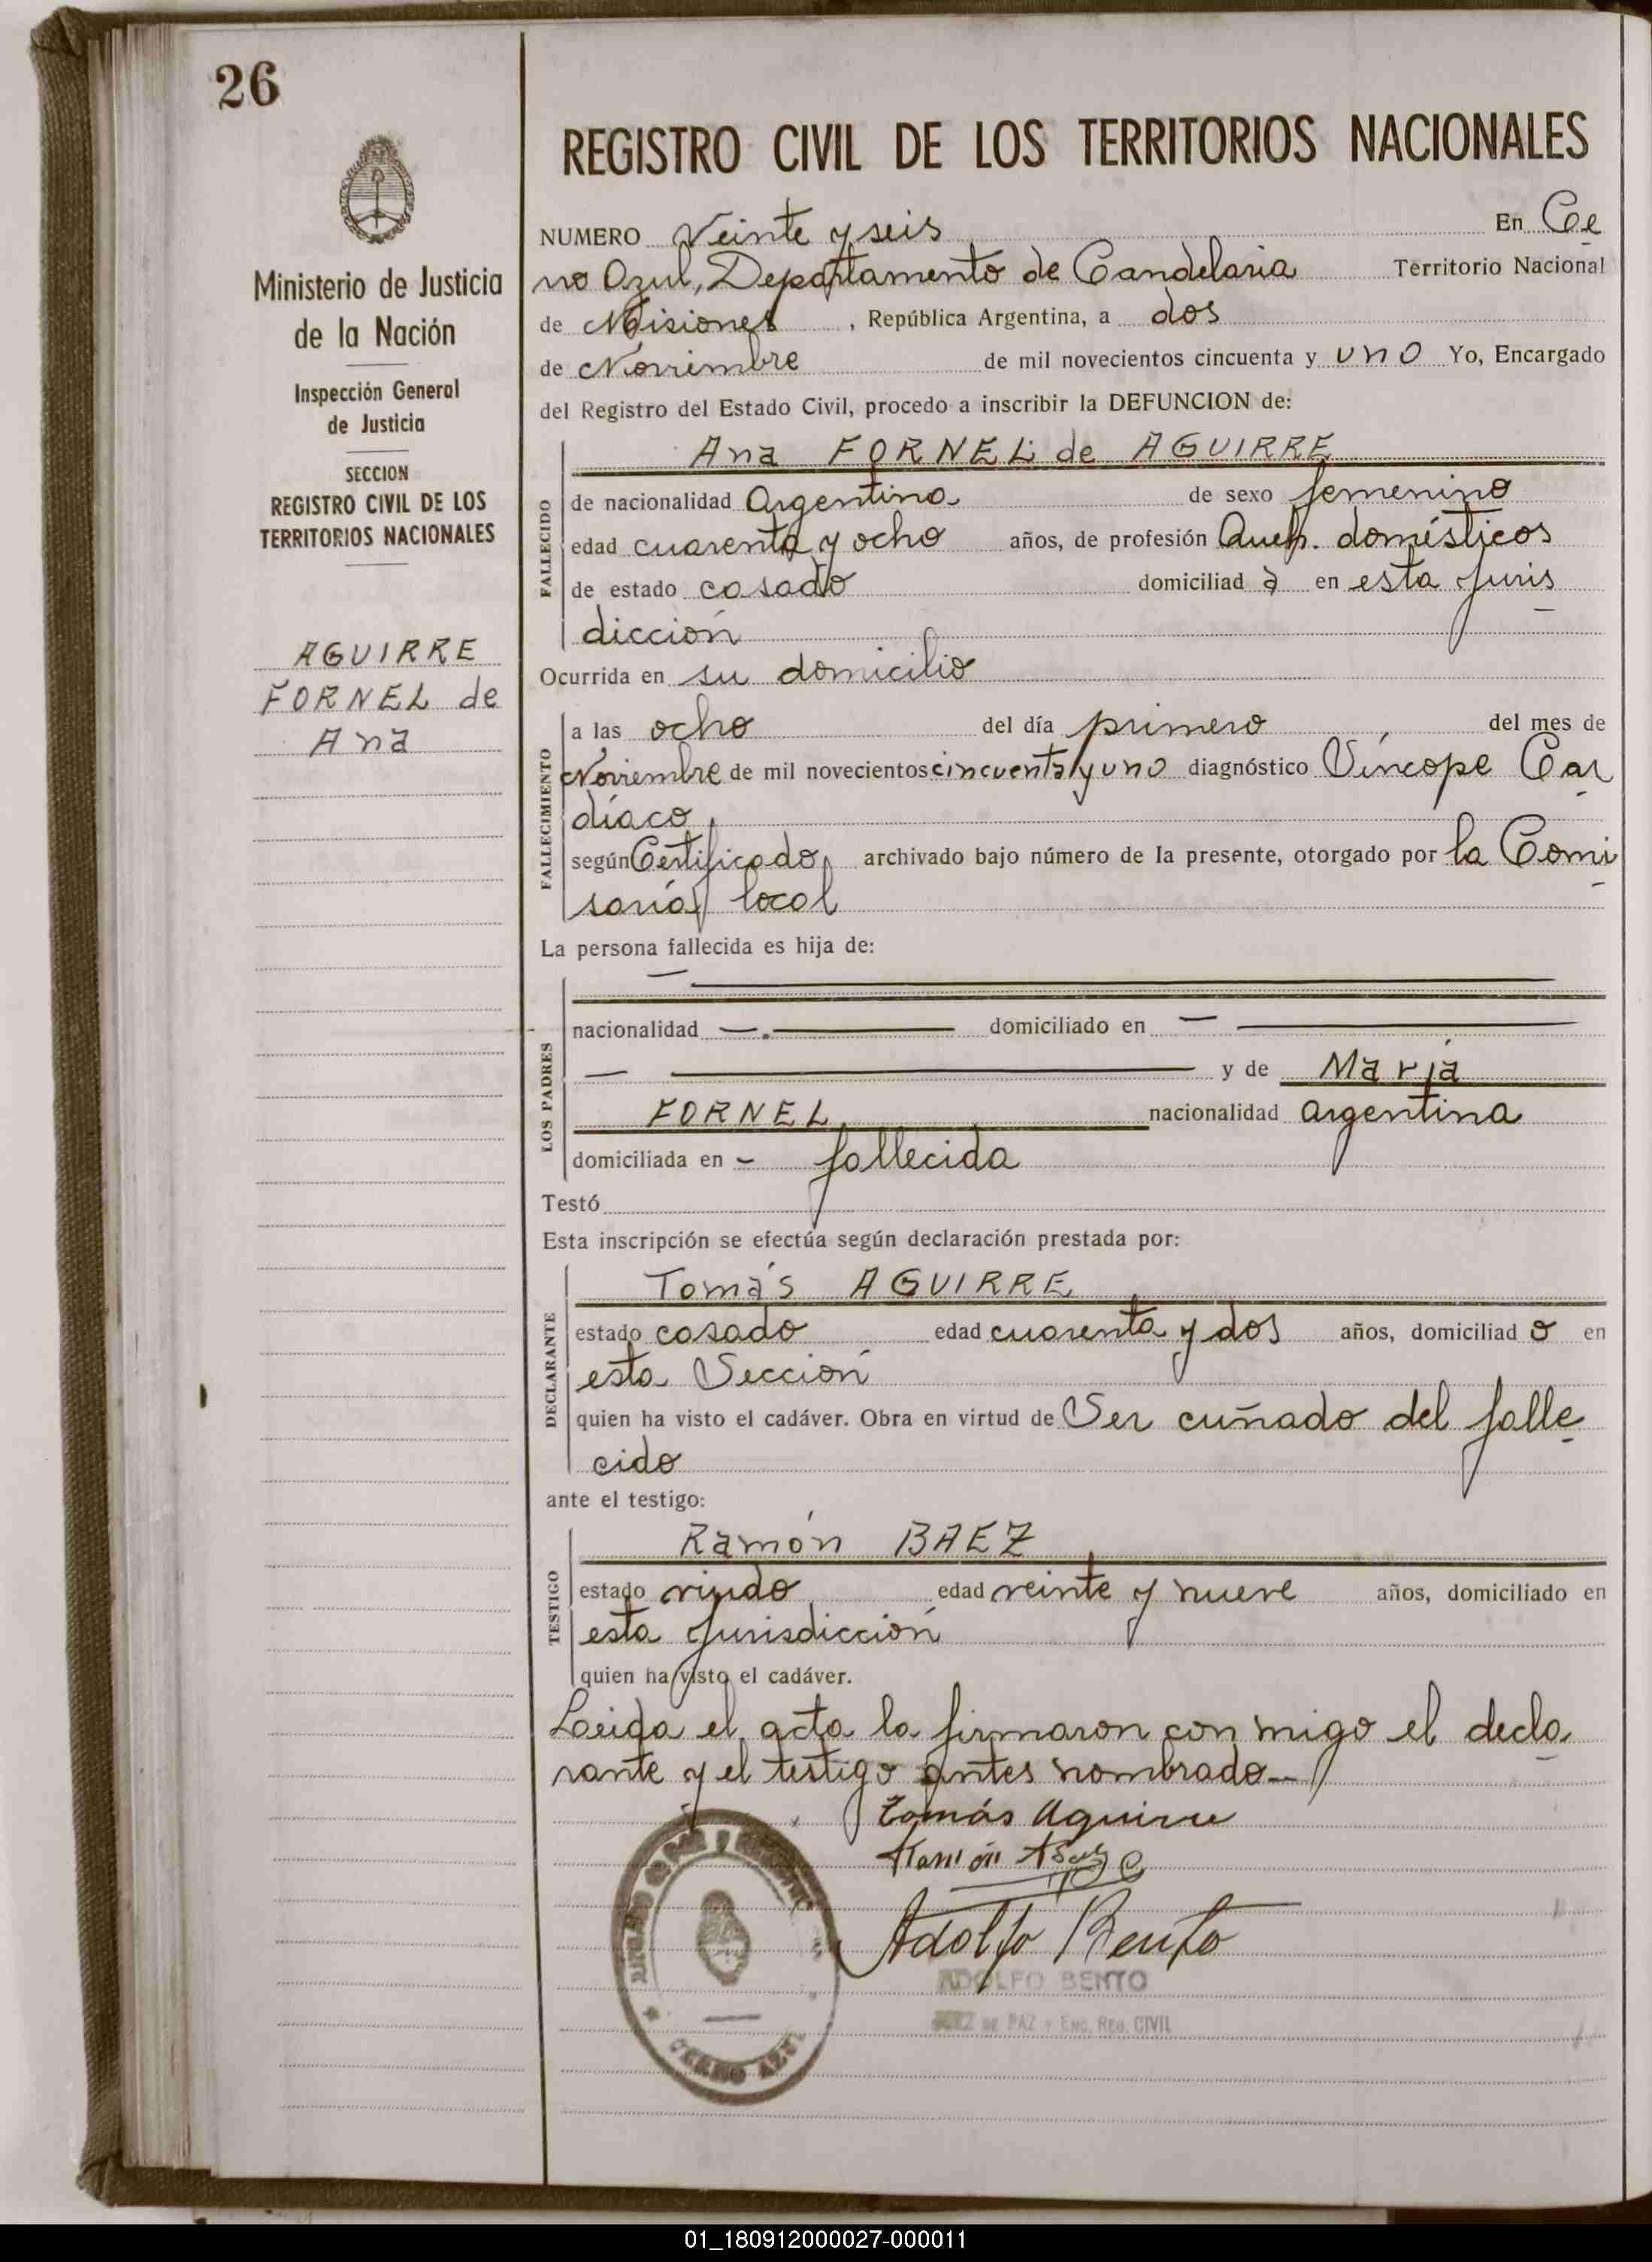 26
Ministerio de Justicia
de la Nación
Inspección General
de Justicia
SECCION
REGISTRO CIVIL DE LOS
TERRITORIOS NACIONALES
AGUIRRE
FORNEL de
Ana
REGISTRO CIVIL DE LOS TERRITORIOS NACIONALES
NUMERO Veinte y seis En Ce
rro Azul, Departamento de Candelaria Territorio Nacional
de Misiones, República Argentina, a dos
de Noviembre de mil novecientos cincuenta y uno Yo, Encargado
del Registro del Estado Civil, procedo a inscribir la DEFUNCION de:
Ana FORNEL de AGUIRRE
FALLECIDO
de nacionalidad Argentina de sexo femenino
edad cuarenta y ocho años, de profesión Queh. domésticos
de estado casado domiciliad a en esta juris
dicción
Ocurrida en su domicilio
FALLECIMIENTO
a las ocho del día primero del mes de
Noviembre de mil novecientos cincuenta y uno diagnóstico Síncope Car
díaco
según Certificado archivado bajo número de la presente, otorgado por la Comi
saría local
La persona fallecida es hija de:
LOS PADRES
nacionalidad — domiciliado en —
— y de María
FORNEL nacionalidad argentina
domiciliada en - fallecida
Testó
Esta inscripción se efectúa según declaración prestada por:
DECLARANTE
Tomás AGUIRRE
estado casado edad cuarenta y dos años, domiciliad o en
esta Sección
quien ha visto el cadáver. Obra en virtud de Ser cuñado del falle
cido
ante el testigo:
TESTIGO
Ramón BAEZ
estado viudo edad veinte y nueve años, domiciliado en
esta jurisdicción
quien ha visto el cadáver.
Leida el acta la firmaron con migo el decla
rante y el testigo antes nombrado—
Tomás Aguirre
Ramón Baez
Adolfo Bento
ADOLFO BENTO
JUEZ DE PAZ Y ENC. REG. CIVIL
CERRO AZUL
01_180912000027-000011